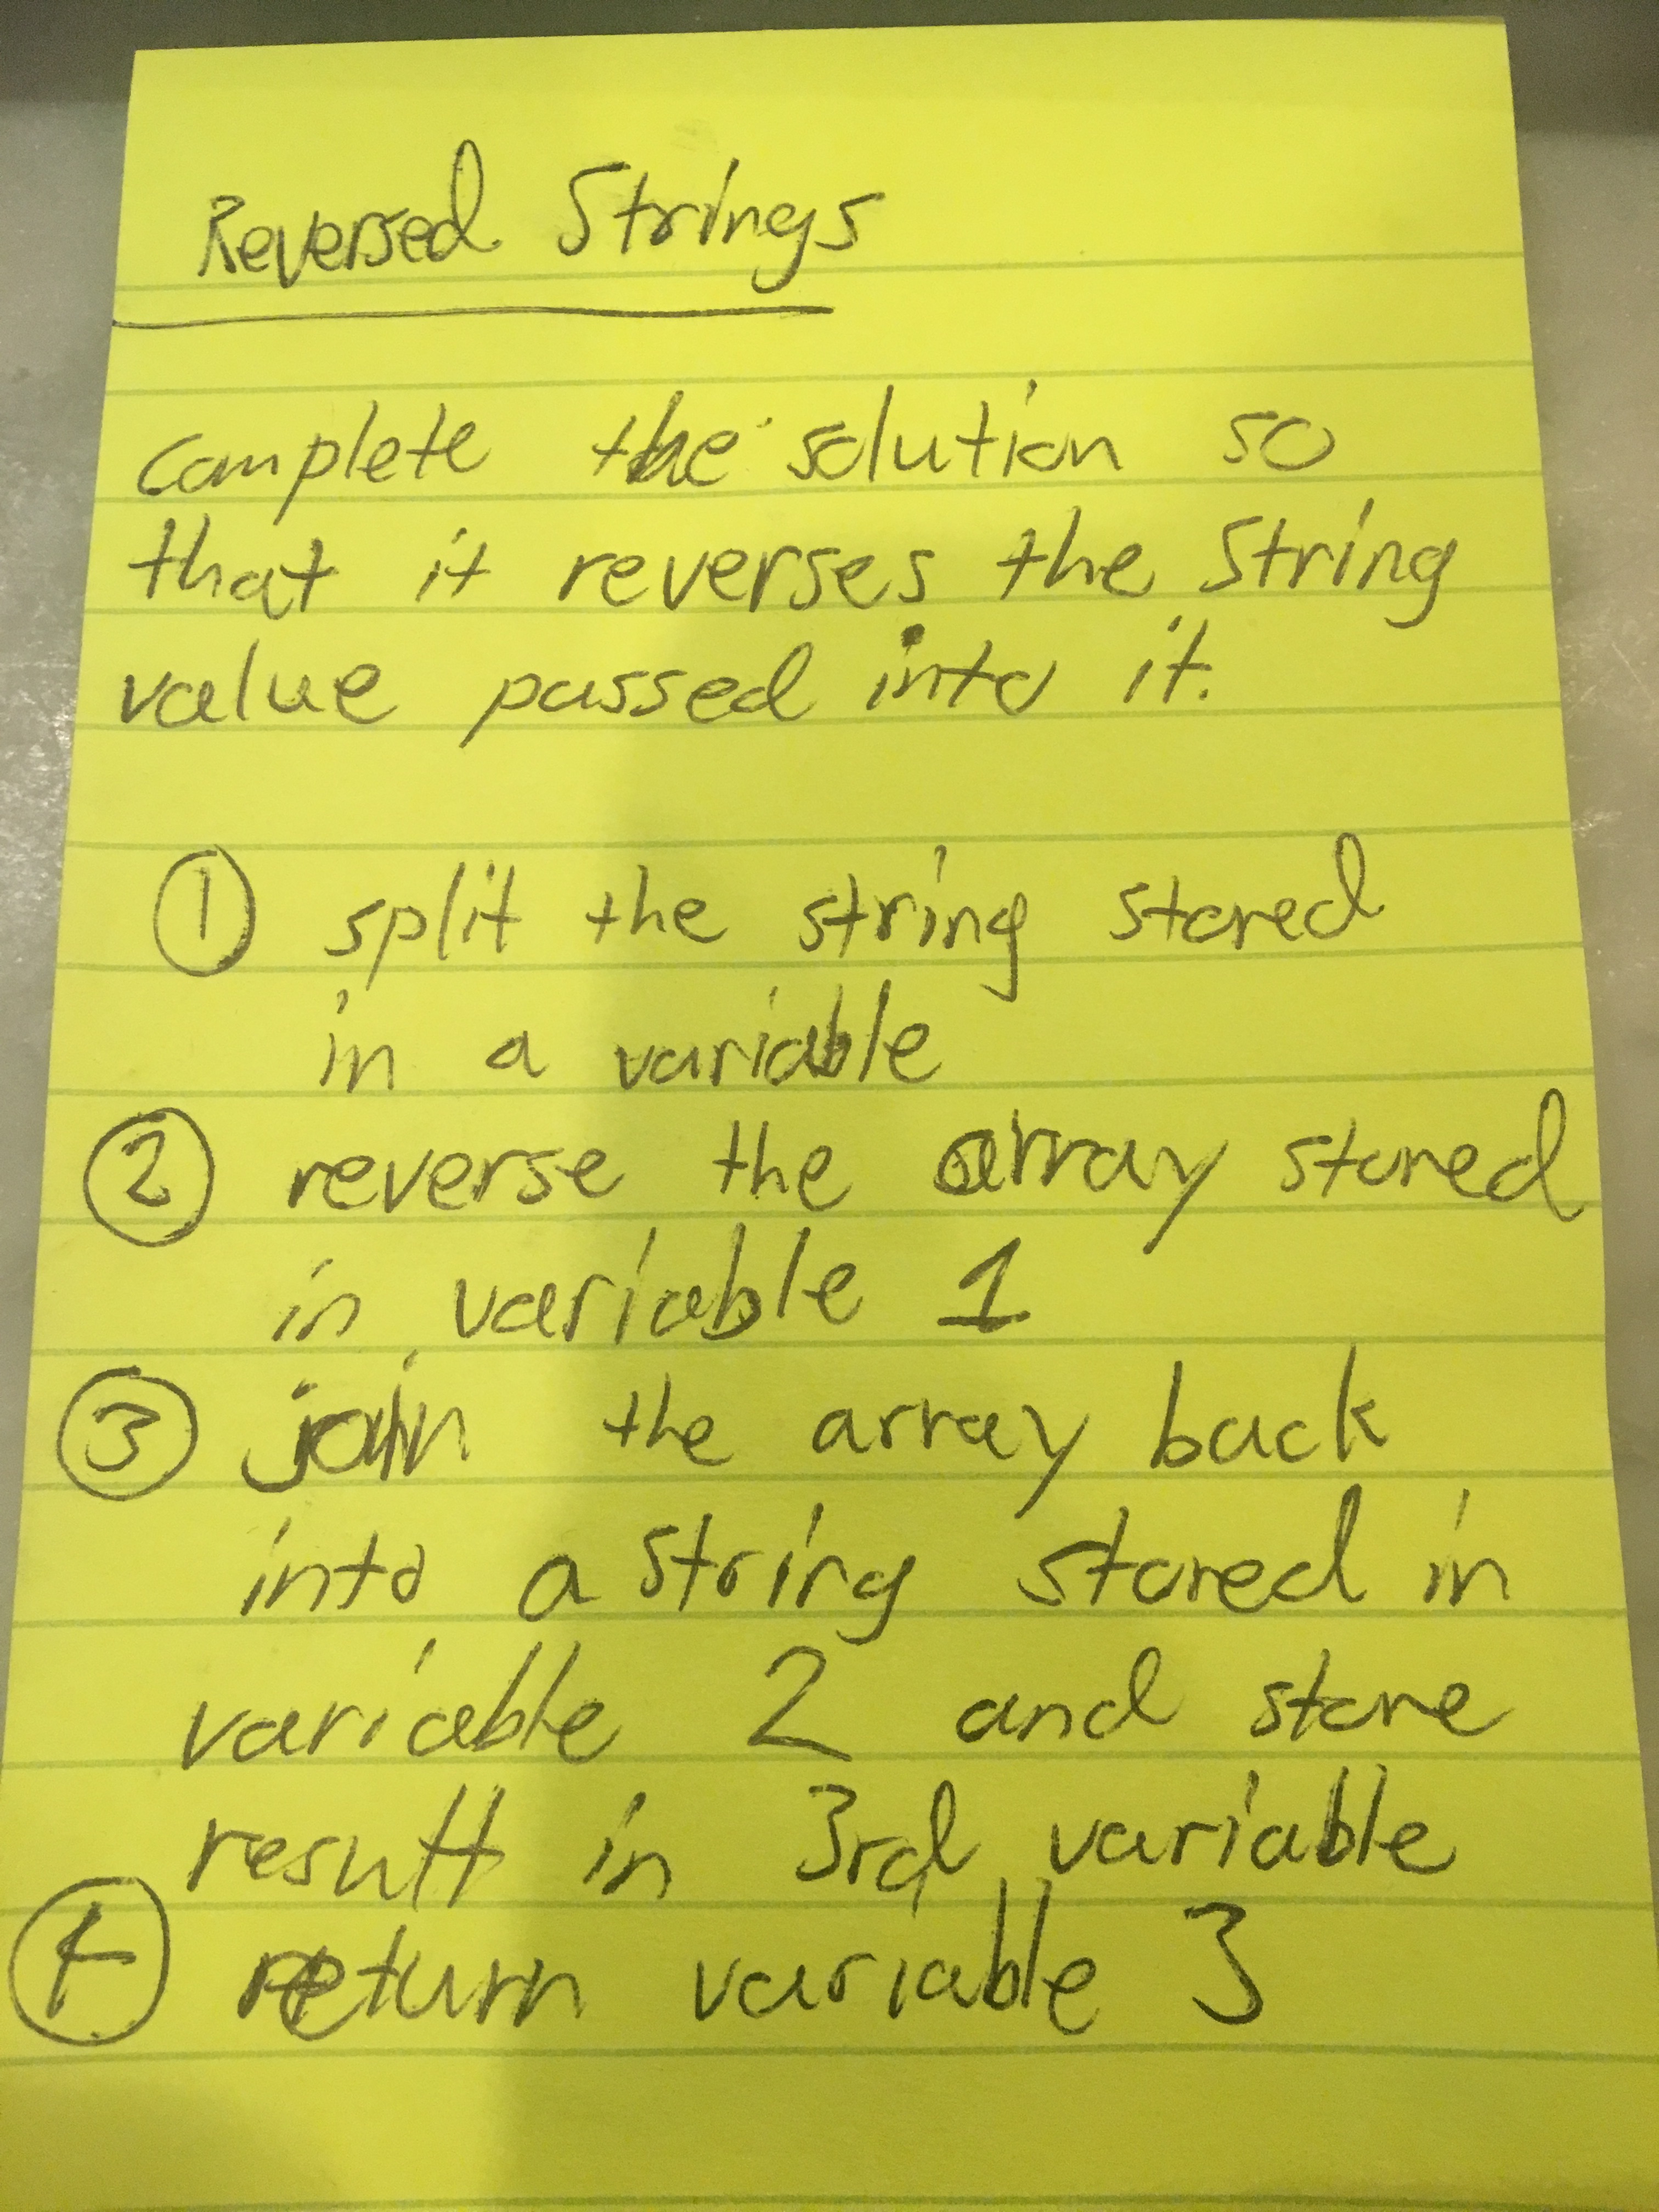 Reversed Strings
complete the solution so
that it reverses the string
value passed into it.
① split the string stored
in a variable
② reverse the array stored
in variable 1
③ join the array back
into a string stored in
variable 2 and store
result in 3rd variable
④ return variable 3